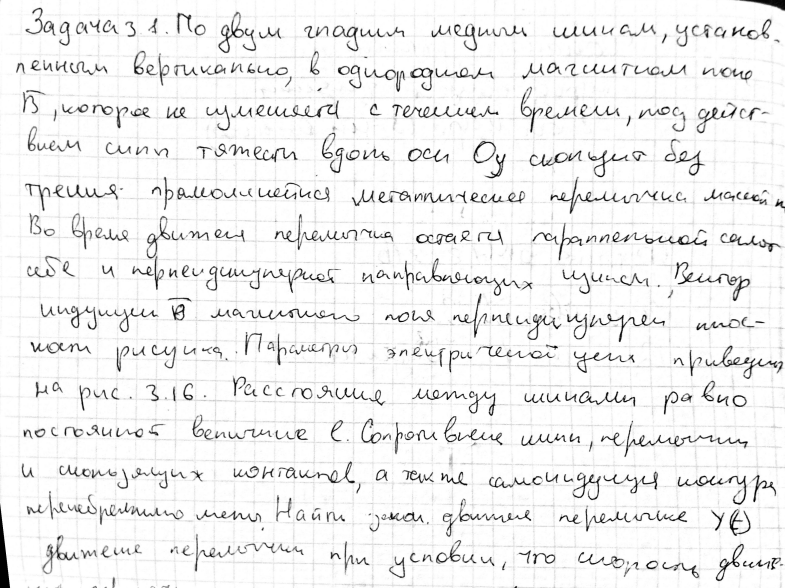 Задача 3 1. По двум гладким медным шинам, установ-
ленным вертикально, в однородном магнитном поле
B, которое не изменяется с течением времени, под дейст-
вием силы тяжести вдоль оси Oy скользит без
трения прямолинейная металлическая перемычка массой m
Во время движения перемычка остаётся параллельной самой
себе и перпендикулярной направляющих шинам. Вектор
индукции B магнитного поля перпендикулярен плос-
кости рисунка. Параметры электрической цепи приведены
на рис. 3.16. Расстояние между шинами равно
постоянной величине l. Сопротивление шин, перемычки
и скользящих контактов, а также самоиндукция контура
пренебрежимо малы. Найти закон движения перемычки y(t)
движение перемычки при условии, что скорость движе-